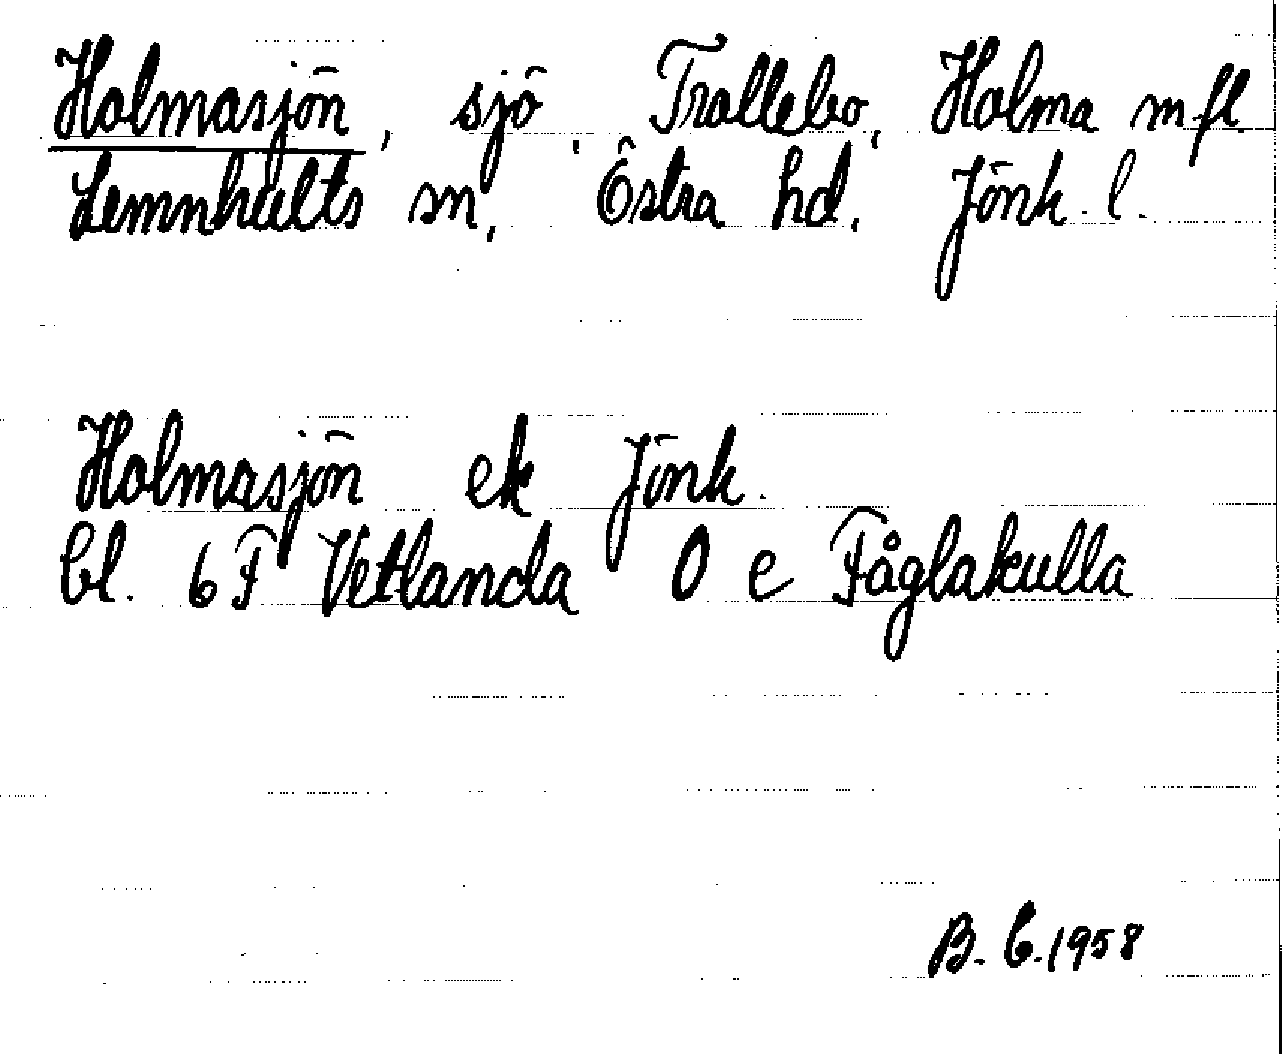 Holmasjön, sjö, Trollebo, Holma m fl.
Lemnhults sn, Östra hd. Jönk. l.
Holmasjön ek Jönk.
bl. 6F Vetlanda O e Fåglakulla
B. C. 1958